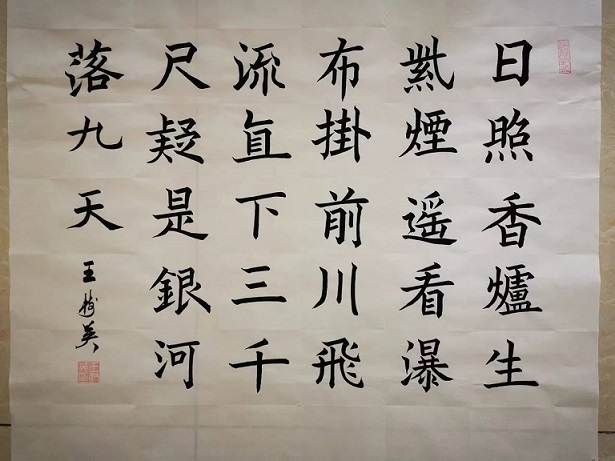 日照香爐生
紫煙遥看瀑
布掛前川飛
流直下三千
尺疑是銀河
落九天
王樹英